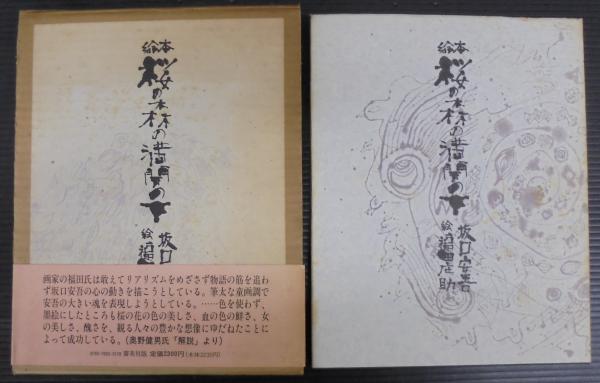 絵本
桜の森の満開の下
坂口
絵
画家の福田氏は敢えてリアリズムをめざさず物語の筋を追わ
ず坂口安吾の心の動きを描こうとしている。筆太な童画調で
安吾の大きい魂を表現しようとしている。……色を使わず、
墨絵にしたところも桜の花の色の美しさ、血の色の鮮さ、女
の美しさ、醜さを、観る人々の豊かな想像にゆだねたことに
よって成功している。(奥野健男氏「解説」より)
審美社版 定価2300円
絵本
桜の森の満開の下
坂口安吾
絵 福田庄助